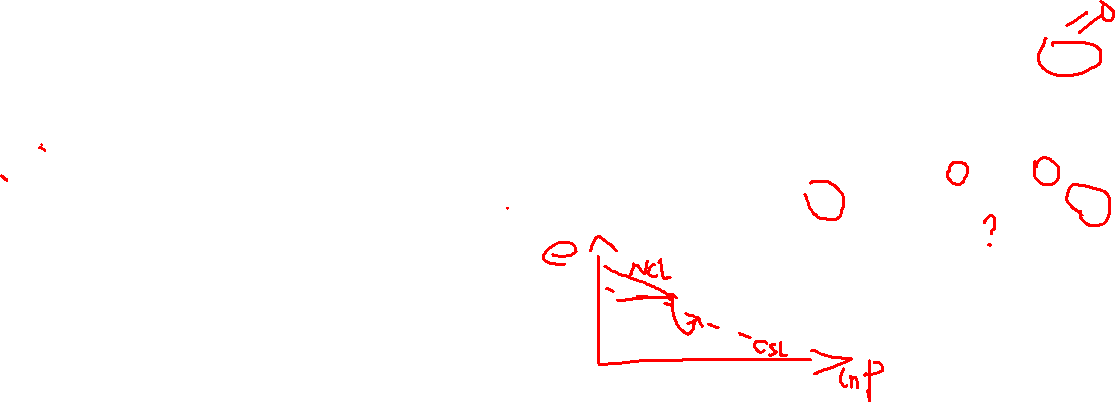 ?
e
NCL
CSL
lnP